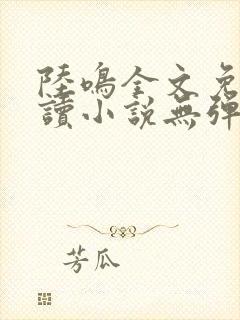 陸鳴全文免
讀小說無彈
芳瓜